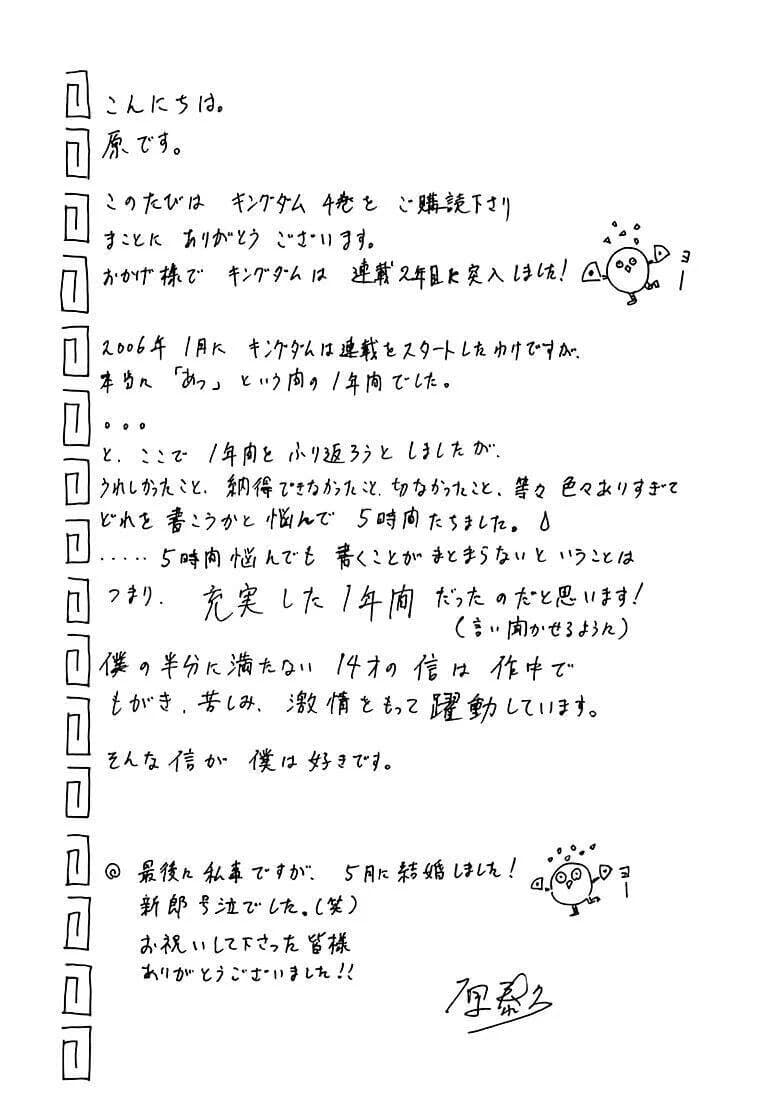 こんにちは。
原です。
このたびは キングダム 4巻を ご購読下さり
まことに ありがとう ございます。
おかげ様で キングダムは 連載2年目に突入しました!
ヨー
2006年 1月に キングダムは連載をスタートしたわけですが、
本当に 「あっ」という間の1年間でした。
。。。
と、ここで 1年間を ふり返ろうと しましたが、
うれしかったこと、納得できなかったこと、切なかったこと、等々 色々ありすぎて
どれを 書こうかと 悩んで 5時間たちました。
‥‥‥5時間悩んでも 書くことが まとまらないと いうことは
つまり、 充実した1年間 だったのだと思います!
(言い聞かせるように)
僕の半分に満たない 14才の 信は 作中で
もがき、苦しみ、 激情をもって 躍動しています。
そんな 信が 僕は 好きです。
@ 最後に 私事ですが、 5月に 結婚しました!
ヨー
新郎号泣でした。(笑)
お祝いして下さった皆様
ありがとうございました!!
原泰久